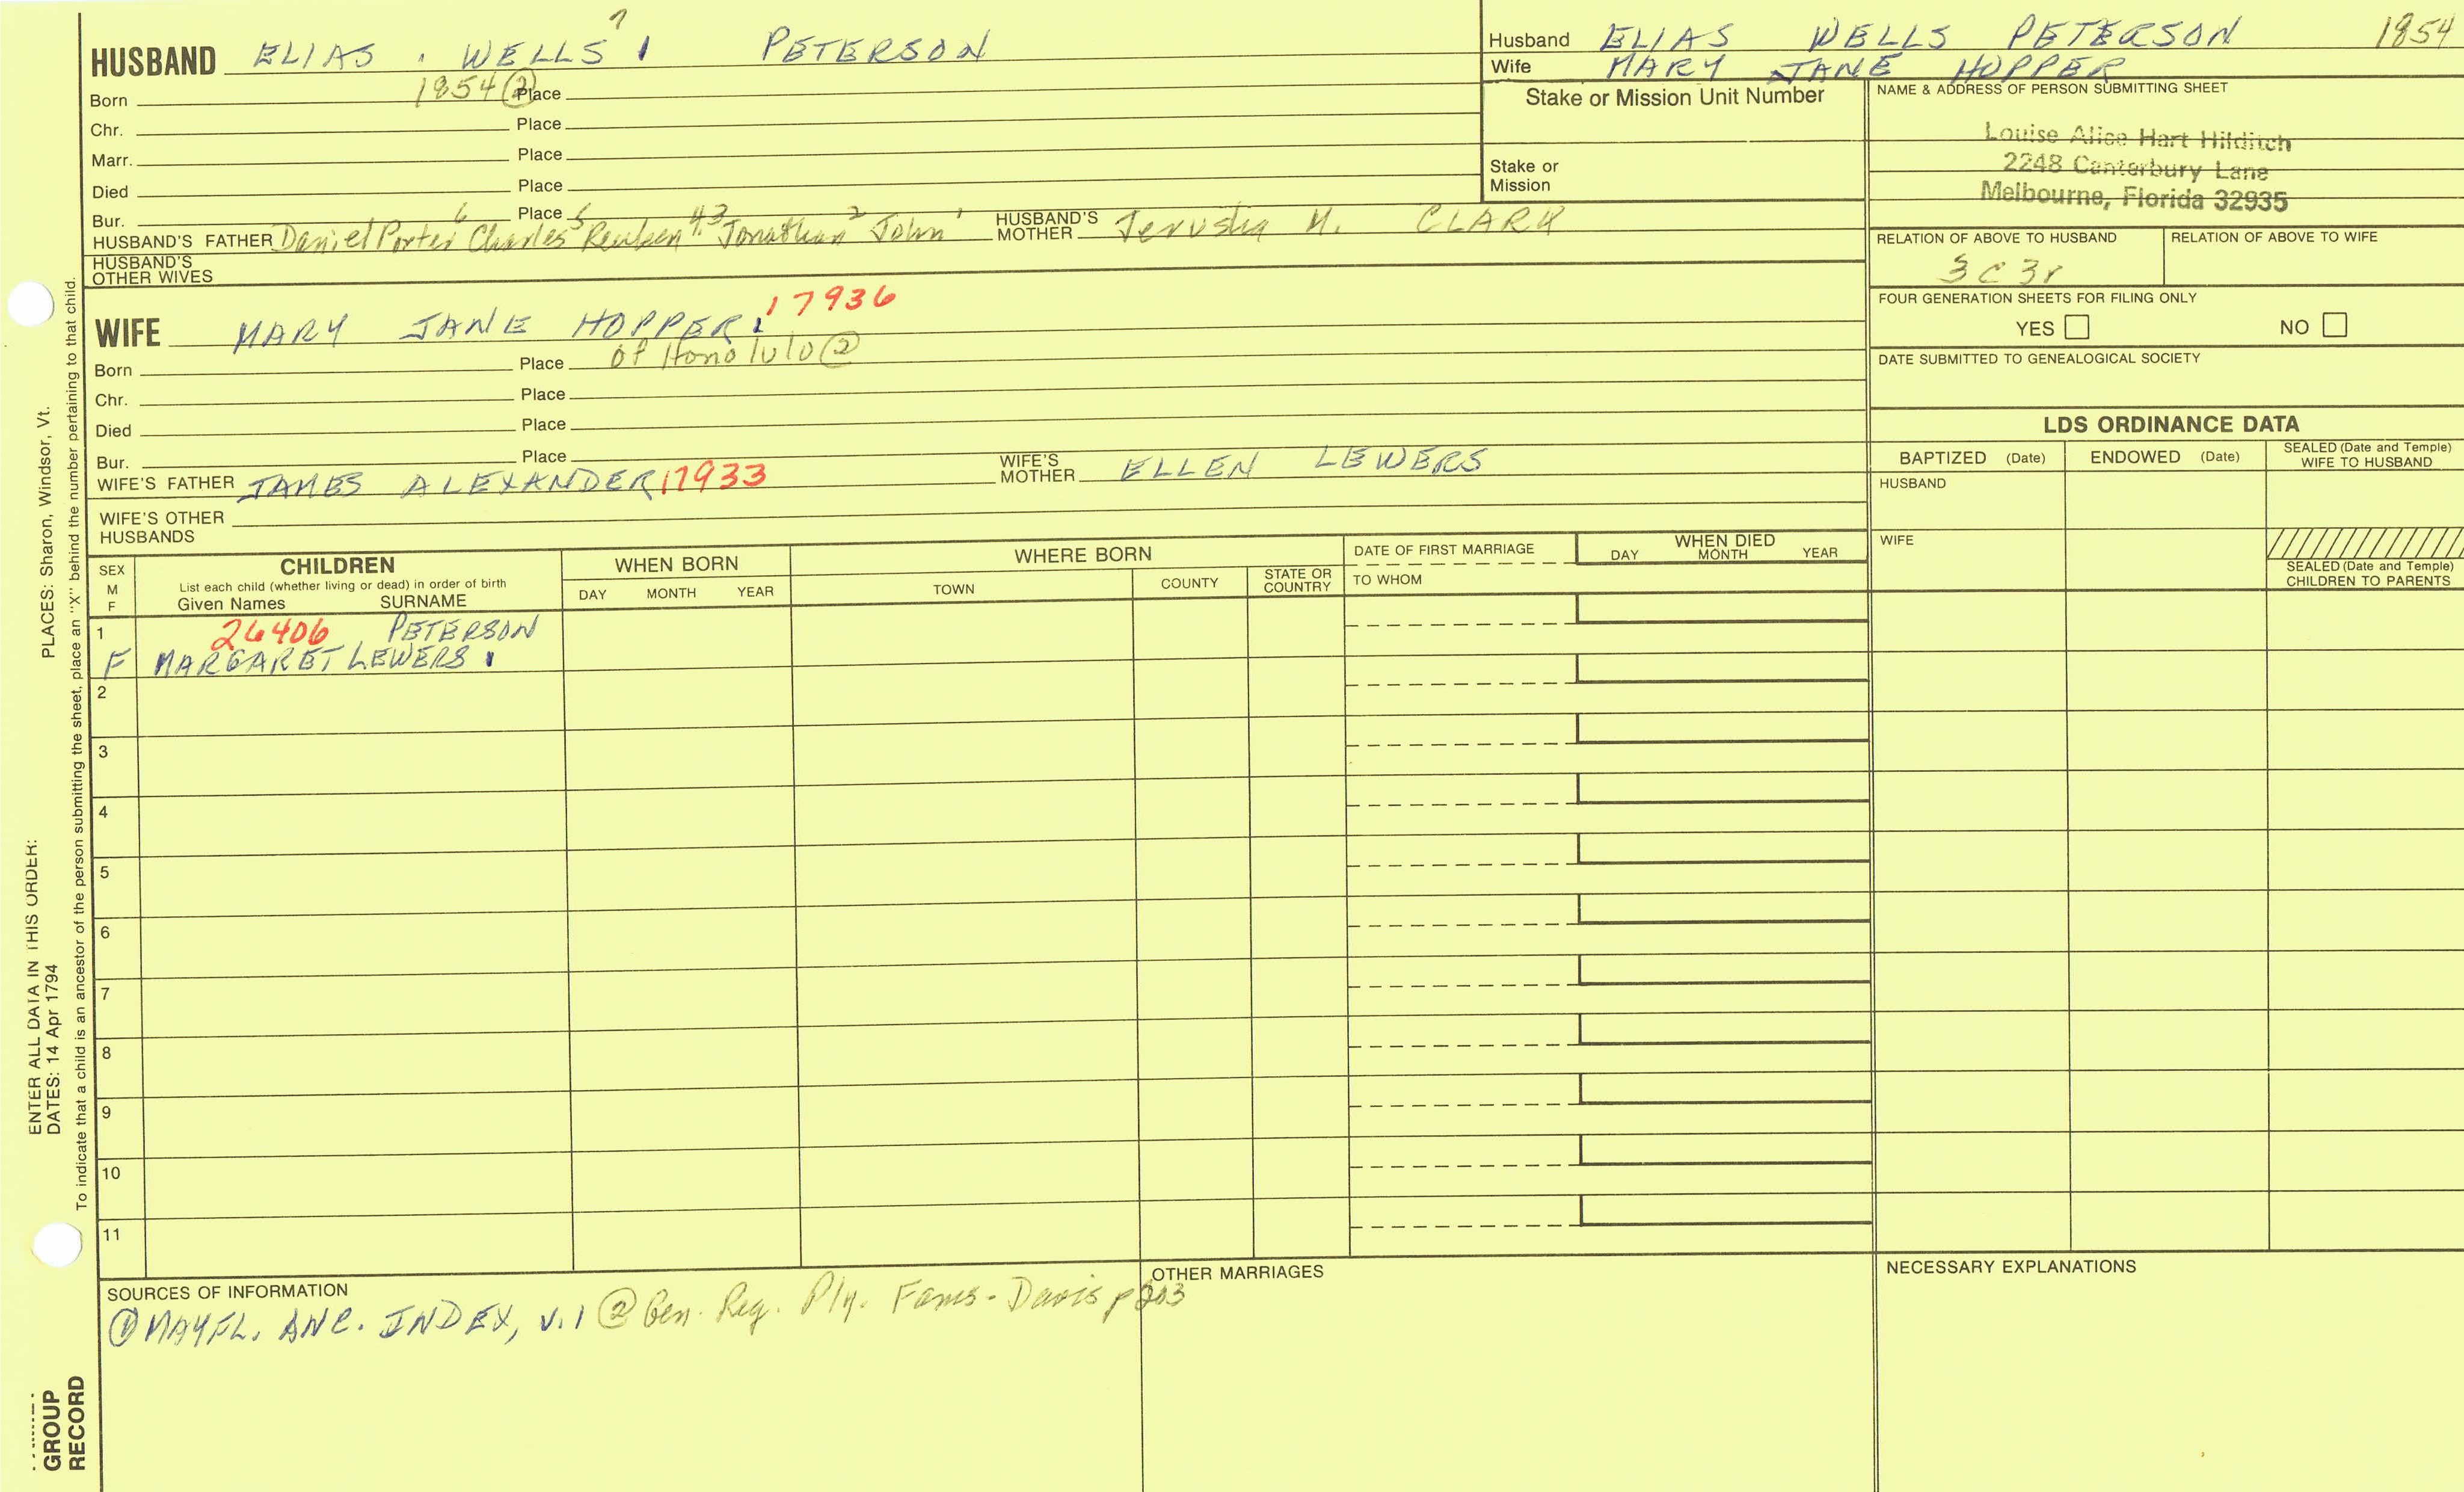 HUSBAND ELIAS . WELLS 7 1 PETERSON
Born 1854 ② Place
Chr. Place
Marr. Place
Died Place
Bur. Place
HUSBAND'S FATHER Daniel Porter 6 Charles 5 Reuben 4,3 Jonathan 2 John 1 HUSBAND'S MOTHER Jerusha M. CLARK
HUSBAND'S OTHER WIVES
WIFE MARY JANE HOPPER 1 17936
Born Place of Honolulo ②
Chr. Place
Died Place
Bur. Place
WIFE'S FATHER JAMES ALEXANDER 17933 WIFE'S MOTHER ELLEN LEWERS
WIFE'S OTHER HUSBANDS
Husband ELIAS WELLS PETERSON 1854
Wife MARY JANE HOPPER
Stake or Mission Unit Number
Stake or Mission
NAME & ADDRESS OF PERSON SUBMITTING SHEET
Louise Alice Hart Hilditch
2248 Canterbury Lane
Melbourne, Florida 32935
RELATION OF ABOVE TO HUSBAND RELATION OF ABOVE TO WIFE
3C3r
FOUR GENERATION SHEETS FOR FILING ONLY
YES NO
DATE SUBMITTED TO GENEALOGICAL SOCIETY
LDS ORDINANCE DATA
BAPTIZED (Date) ENDOWED (Date) SEALED (Date and Temple) WIFE TO HUSBAND
HUSBAND
WIFE
SEALED (Date and Temple) CHILDREN TO PARENTS
SEX M F
CHILDREN
List each child (whether living or dead) in order of birth
Given Names SURNAME
WHEN BORN
DAY MONTH YEAR
WHERE BORN
TOWN COUNTY STATE OR COUNTRY
DATE OF FIRST MARRIAGE
TO WHOM
WHEN DIED
DAY MONTH YEAR
1 26406 PETERSON
F MARGARET LEWERS 1
2
3
4
5
6
7
8
9
10
11
SOURCES OF INFORMATION
① MAYFL. ANC. INDEX, V.1 ② Gen. Reg. Ply. Fams - Davis p 203
OTHER MARRIAGES
NECESSARY EXPLANATIONS
ENTER ALL DATA IN THIS ORDER:
DATES: 14 Apr 1794
PLACES: Sharon, Windsor, Vt.
To indicate that a child is an ancestor of the person submitting the sheet, place an "X" behind the number pertaining to that child.
GROUP
RECORD